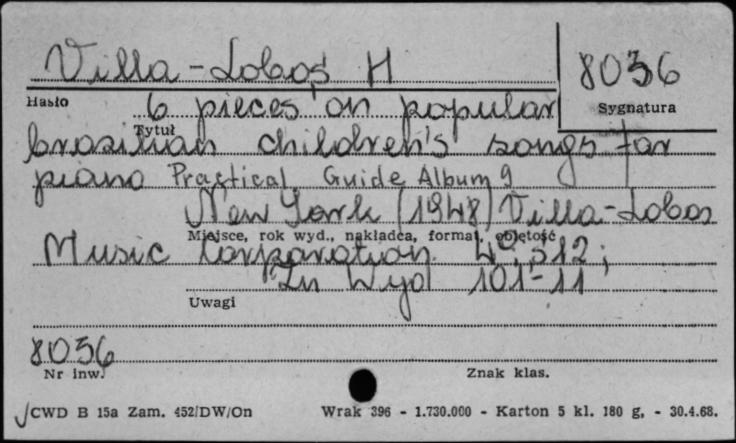 Villa-Lobos H
8036
Hasło
Sygnatura
6 pieces on popular
Tytuł
brazilian children's songs for
piano Practical Guide Album 9
New York (1948) Villa-Lobos
Miejsce, rok wyd., nakładca, format, objętość
Music Corporation. 4°, S12;
Zn Wyd 101-11
Uwagi
8036
Nr inw.
Znak klas.
CWD B 15a Zam. 452/DW/On Wrak 396 - 1.730.000 - Karton 5 kl. 180 g. - 30.4.68.